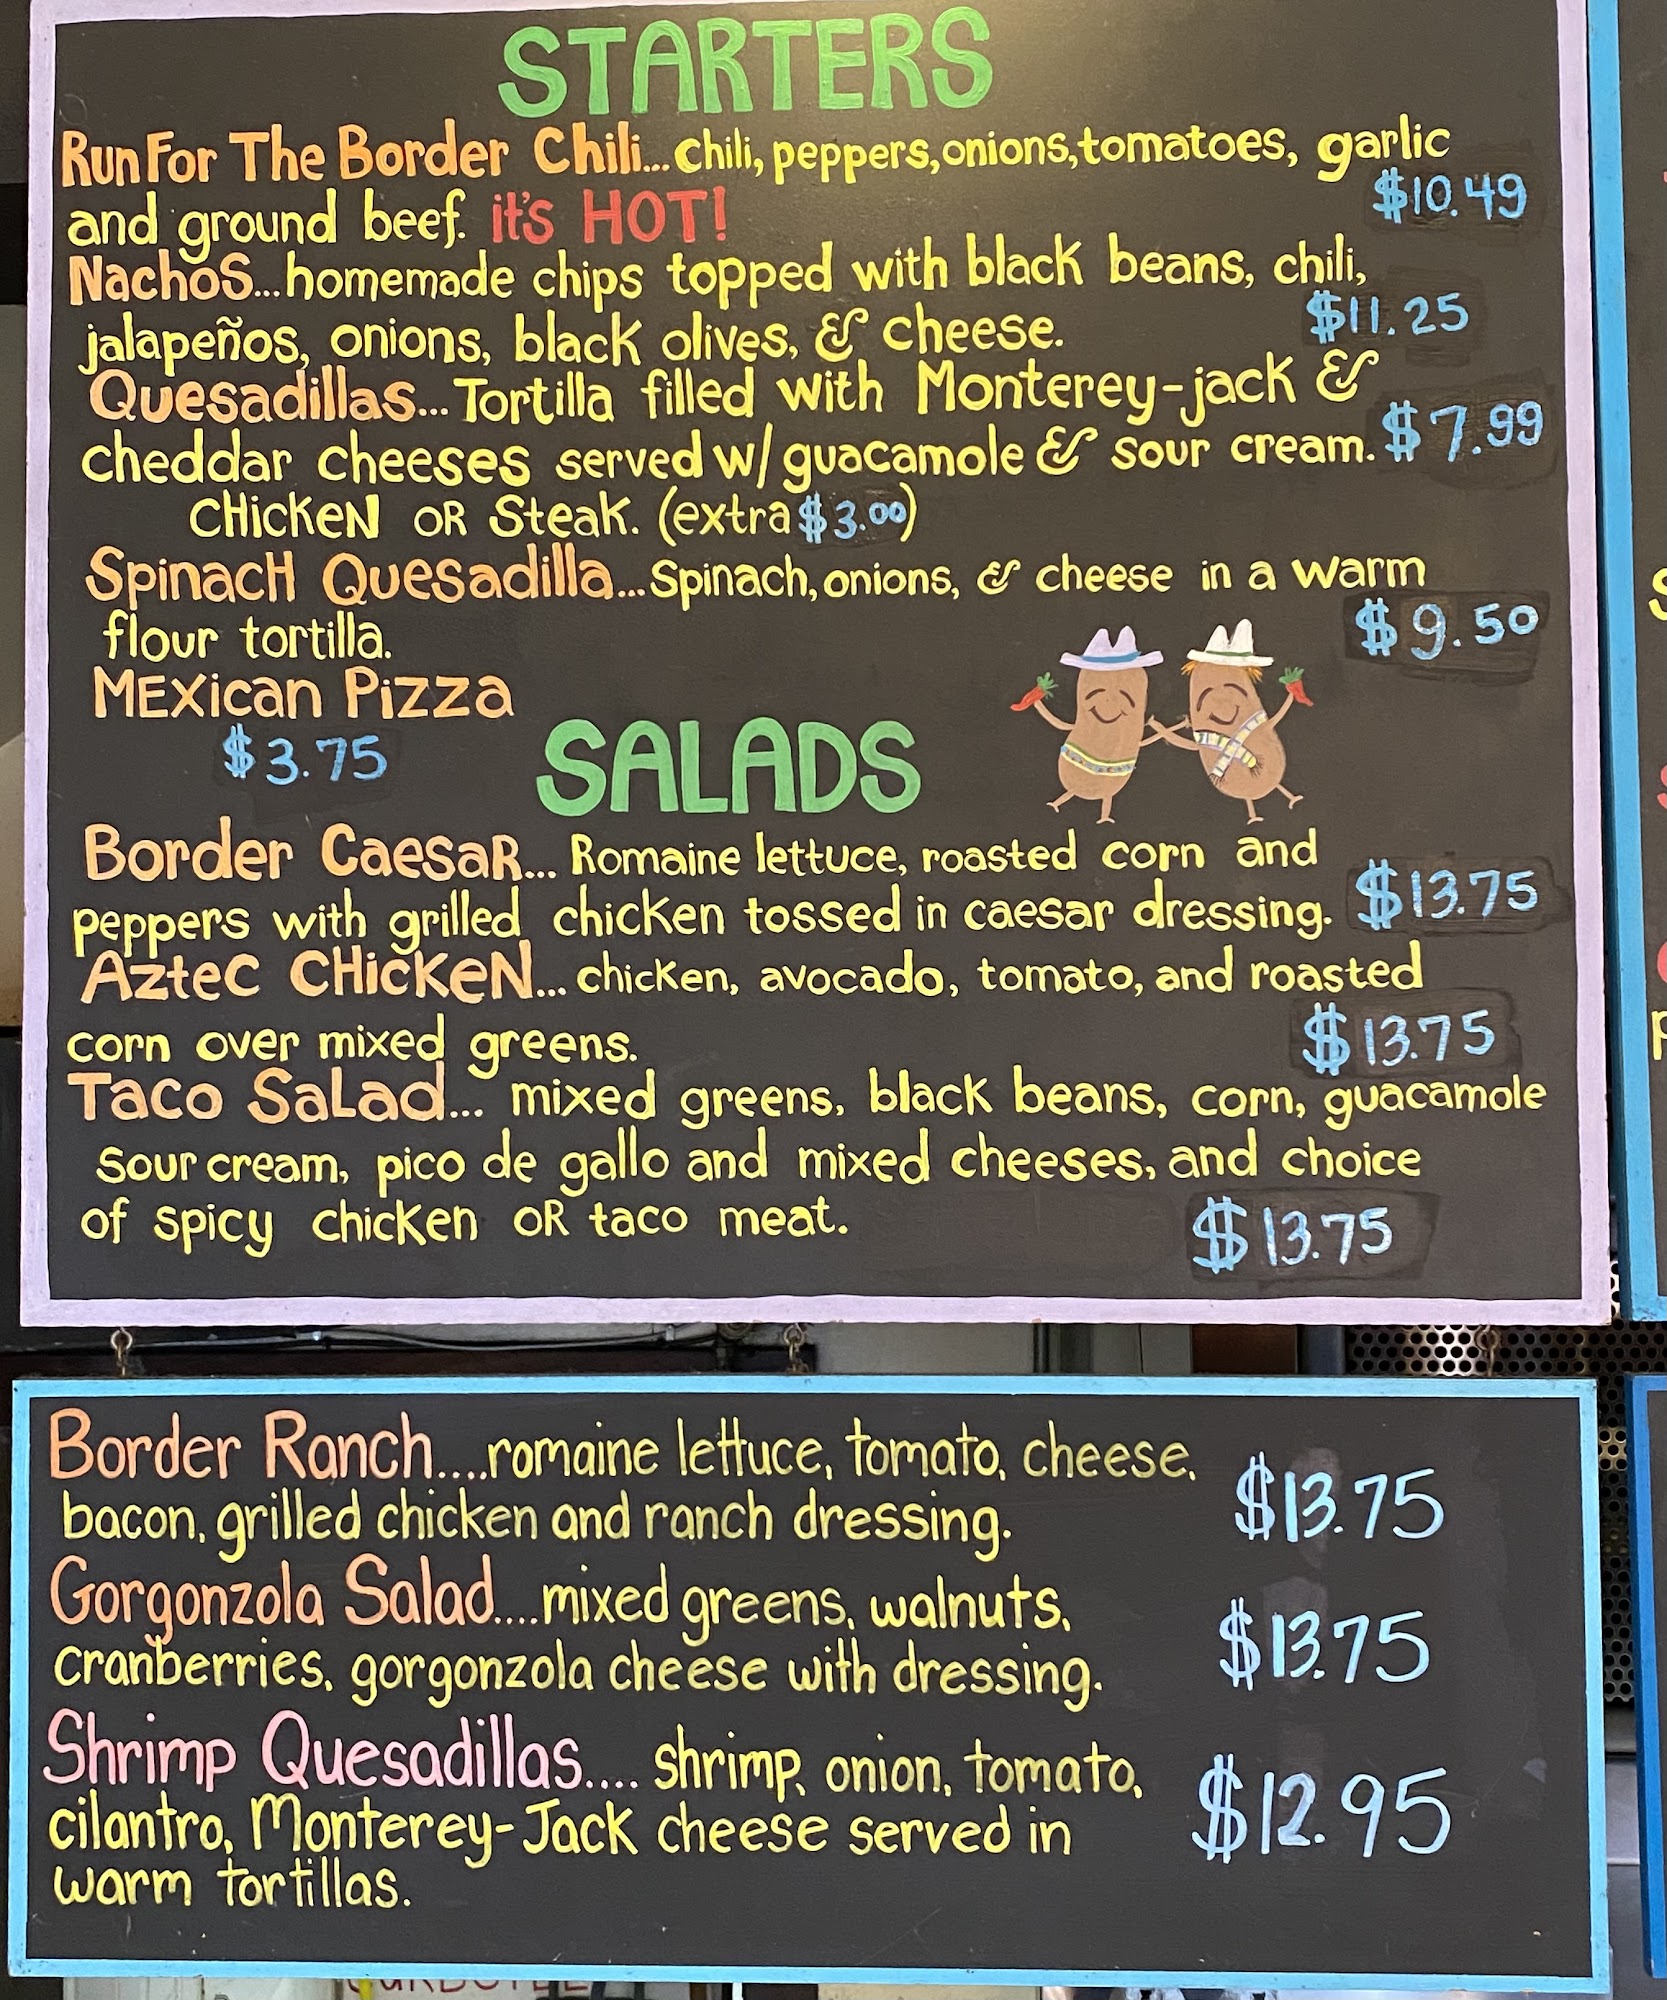 STARTERS
Run For The Border Chili... chili, peppers, onions, tomatoes, garlic
and ground beef. it's HOT! $10.49
Nachos... homemade chips topped with black beans, chili,
jalapeños, onions, black olives, & cheese. $11.25
Quesadillas... Tortilla filled with Monterey-jack &
cheddar cheeses served w/ guacamole & sour cream. $7.99
CHicKeN OR Steak. (extra $3.00)
SpinacH Quesadilla... Spinach, onions, & cheese in a warm
flour tortilla. $9.50
MEXican Pizza
$3.75
SALADS
Border Caesar... Romaine lettuce, roasted corn and
peppers with grilled chicken tossed in caesar dressing. $13.75
Aztec CHicKeN... chicken, avocado, tomato, and roasted
corn over mixed greens. $13.75
Taco Salad... mixed greens, black beans, corn, guacamole
sour cream, pico de gallo and mixed cheeses, and choice
of spicy chicken OR taco meat. $13.75
Border Ranch.... romaine lettuce, tomato, cheese,
bacon, grilled chicken and ranch dressing. $13.75
Gorgonzola Salad.... mixed greens, walnuts,
cranberries, gorgonzola cheese with dressing. $13.75
Shrimp Quesadillas.... shrimp, onion, tomato,
cilantro, Monterey-Jack cheese served in
warm tortillas. $12.95